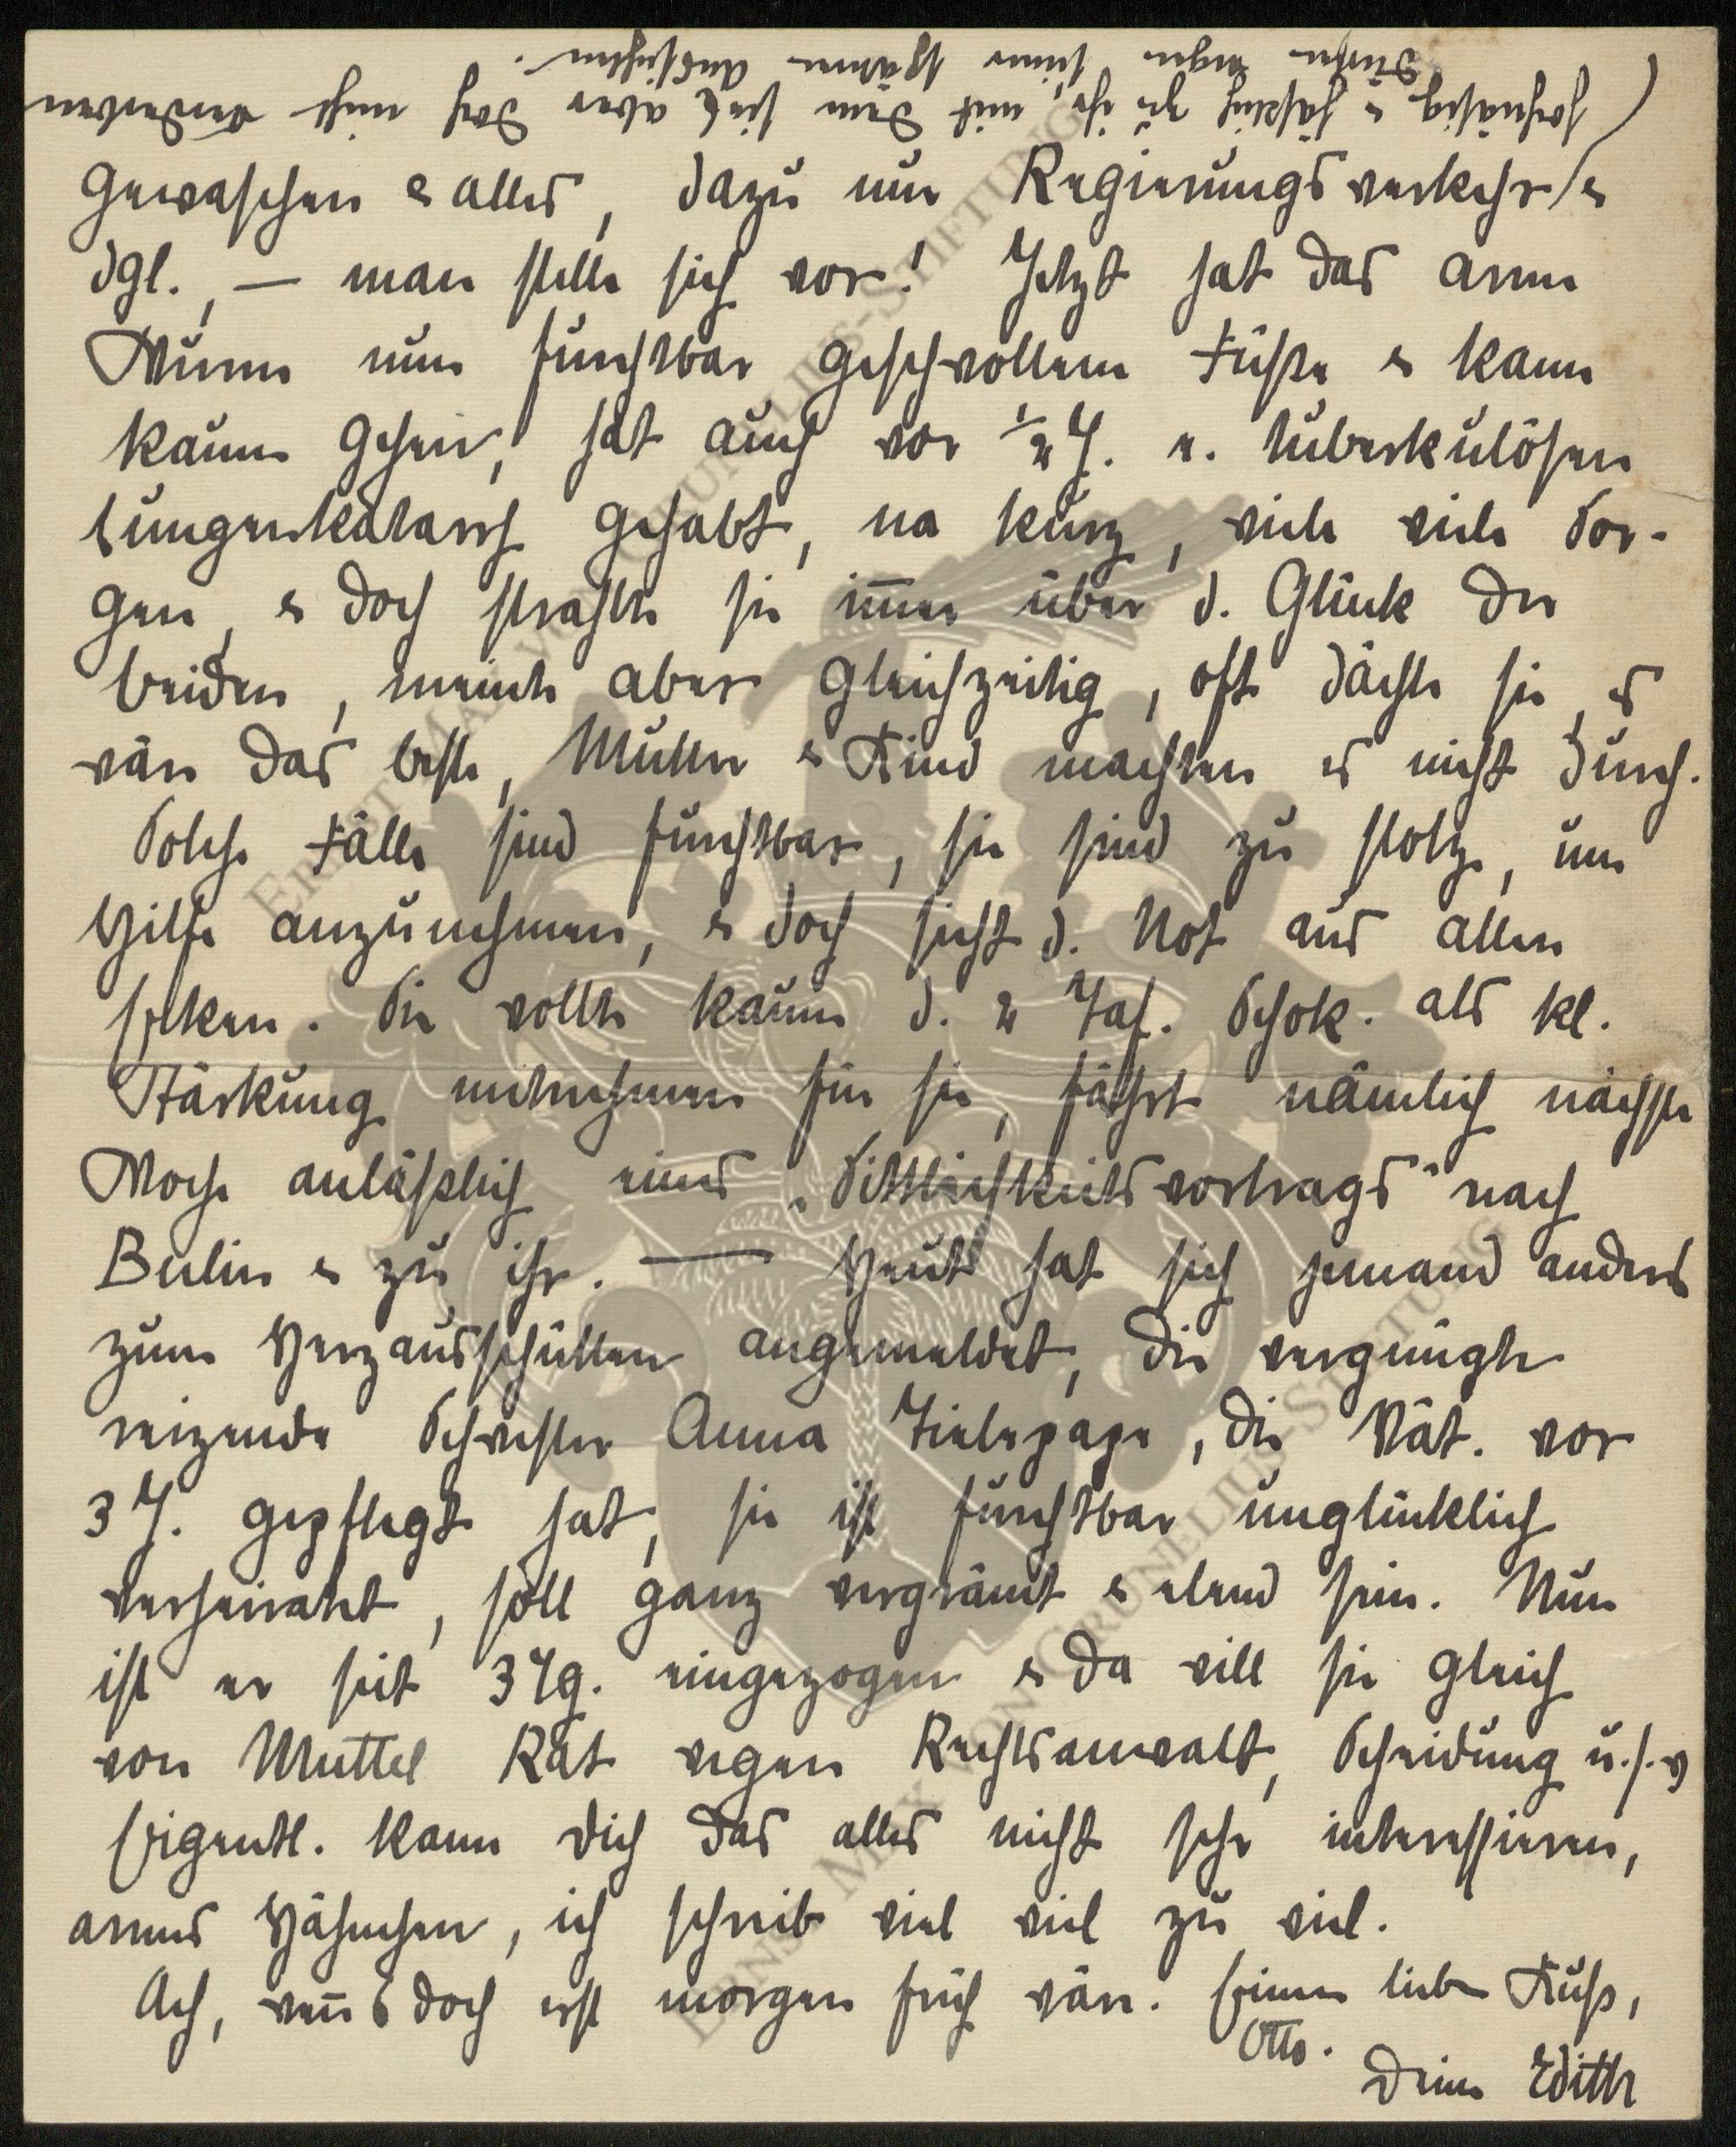 gewaschen & alles, dazu nur Regierungsverkehr &
dgl., — man stelle sich vor! Jetzt hat das arme
Wurm nun furchtbar geschwollene Füsse & kann
kaum gehen, hat auch vor ½ J. e. tuberkulösen
Lungenkatarrh gehabt, na kurz, viele viele Sor-
gen, & doch strahlte sie immer über d. Glück der
beiden, meinte aber gleichzeitig, oft dächte sie, es
wäre das beste, Mutter & Kind machten es nicht durch.
Solche Fälle sind furchtbar, sie sind zu stolz, um
Hilfe anzunehmen, & doch sieht d. Not aus allen
Ecken. Sie wollte kaum d. 2 Taf. Schok. als kl.
Stärkung mitnehmen für sie, fährt nämlich nächste
Woche anläßlich eines „Sittlichkeitsvortrags" nach
Berlin & zu ihr. — Heute hat sich jemand anders
zum Herzausschütten angemeldet, die vergnügte
reizende Schwester Anna Tielepape, die Kät. vor
3 J. gepflegt hat, sie ist furchtbar unglücklich
verheiratet, soll ganz vergrämt & elend sein. Nun
ist er seit 3 Tg. eingezogen & da will sie gleich
von Muttel Rat wegen Rechtsanwalt, Scheidung u.s.w
Eigentl. kann dich das alles nicht sehr interessieren,
armes Hähnchen, ich schreib viel viel zu viel.
Ach, wenns doch erst morgen früh wär. Einen lieben Kuß,
Otto.
Deine Edith
hochnäsig & häßlich zu ihr, mit dem sie's aber doch nicht verderben
dürfen wegen seiner späteren Aussichten.
ERNST MAX VON GRUNELIUS-STIFTUNG
ERNST MAX VON GRUNELIUS-STIFTUNG